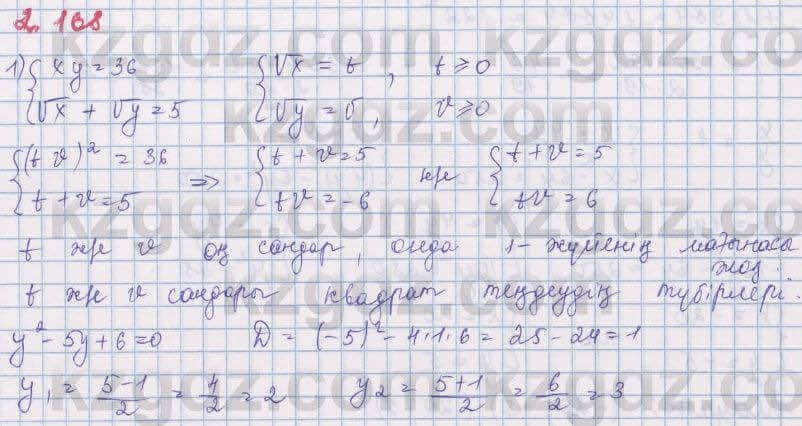 2.168
1) { xy = 36 { √x = t, t ≥ 0
{ √x + √y = 5 { √y = v, v ≥ 0
{ (t v)² = 36 ⇒ { t + v = 5 не { t + v = 5
{ t + v = 5 { tv = -6 { tv = 6
t же v оң сандар, онда 1-жүйенің мағынасы
жоқ.
t же v сандары квадрат теңдеудің түбірлері.
y² - 5y + 6 = 0 D = (-5)² - 4·1·6 = 25 - 24 = 1
y₁ = (5-1)/2 = 4/2 = 2 y₂ = (5+1)/2 = 6/2 = 3
kzgdz.com